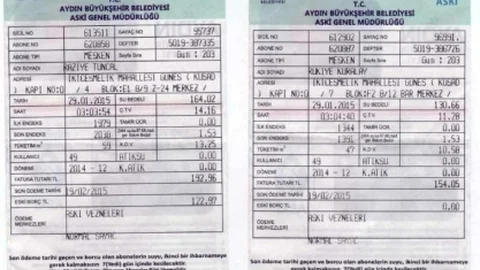 T.C.
AYDIN BÜYÜKŞEHİR BELEDİYESİ
ASKİ GENEL MÜDÜRLÜĞÜ
SİCİL NO 613511 SAYAÇ NO 95737
ABONE NO 620858 DEFTER 5019-387335
ABONE TİPİ MESKEN Sayfa Sıra : 203
ADI SOYADI
ADRESİ IKICESMELIK MAHALLESI GUNES ( KUSAD
) KAPI NO:0 / 4 BLOK:E1 B/9 Z-24 MERKEZ /
TARİH 29.01.2015 SU BEDELİ 164.02
SAAT 03:03:54 Ç.T.V. 14.16
İLK ENDEKS 1979 TAMİR ÜCR. 0.00
SON ENDEKS 2038 1.53
TÜKETİM m³ 59 K.D.V. 13.25
KULLANICI 49 ATIKSU 0.00
DÖNEMİ 2014 - 12 K.ATIK 0.00
FATURA TUTARI TL 192.96
SON ÖDEME TARİHİ 19/02/2015
ESKİ BORÇ TL 122.97
ÖDEME MERKEZLERİ ASKI VEZNELERI
NORMAL SAYAC
Son ödeme tarihi geçen ve borcu olan abonelerin suyu, ikinci bir ihbarnameye
gerek kalmaksızın 7(Yedi) gün içinde kesilecektir.
T.C.
ASKİ
AYDIN BÜYÜKŞEHİR BELEDİYESİ
ASKİ GENEL MÜDÜRLÜĞÜ
SİCİL NO 612902 SAYAÇ NO 96991.
ABONE NO 620887 DEFTER 5019-386726
ABONE TİPİ MESKEN Sayfa Sıra : 203
ADI SOYADI RUKIYE NURALAY
ADRESİ IKICESMELIK MAHALLESI GUNES ( KUSAD
) KAPI NO:0 / 7 BLOK:F2 B/12 BAR MERKEZ /
TARİH 29.01.2015 SU BEDELİ 130.66
SAAT 03:04:40 Ç.T.V. 11.28
İLK ENDEKS 1344 TAMİR ÜCR. 0.00
SON ENDEKS 1391 1.53
TÜKETİM m³ 47 K.D.V. 10.58
KULLANICI 49 ATIKSU 0.00
DÖNEMİ 2014 - 12 K.ATIK 0.00
FATURA TUTARI TL 154.05
SON ÖDEME TARİHİ 19/02/2015
ESKİ BORÇ TL 0.00
ÖDEME MERKEZLERİ ASKI VEZNELERI
NORMAL SAYAC
Son ödeme tarihi geçen ve borcu olan abonelerin suyu, ikinci bir ihbarnameye
gerek kalmaksızın 7(Yedi) gün içinde kesilecektir.